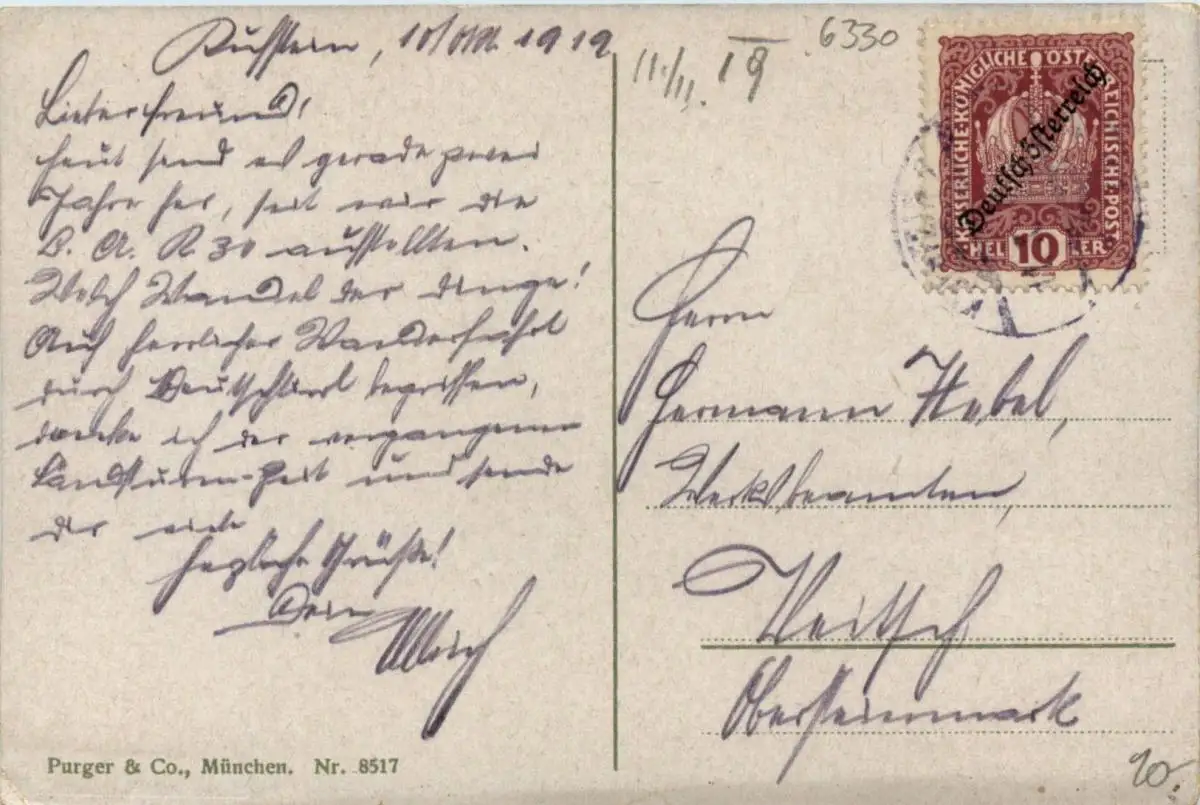 Kufstein, 10/VIII. 1919
Lieber Freund!
heut sind es gerade zwei
Jahre her, seit wir die
L. A. K 30 aufstellten.
Welch Wandel der Dinge!
Auf herrlicher Wanderfahrt
durch Deutschtirol begriffen,
denke ich der vergangenen
Landsturm-Zeit und sende
dir viele
herzliche Grüße!
Dein
Ullrich
Purger & Co., München. Nr. 8517
11./11. 19
6330
KAISERLICHE KÖNIGLICHE ÖSTERREICHISCHE POST
Deutschösterreich
HEL 10 LER
Herrn
Hermann Hebel,
Werksbeamten,
Veitsch
Obersteiermark
20.-